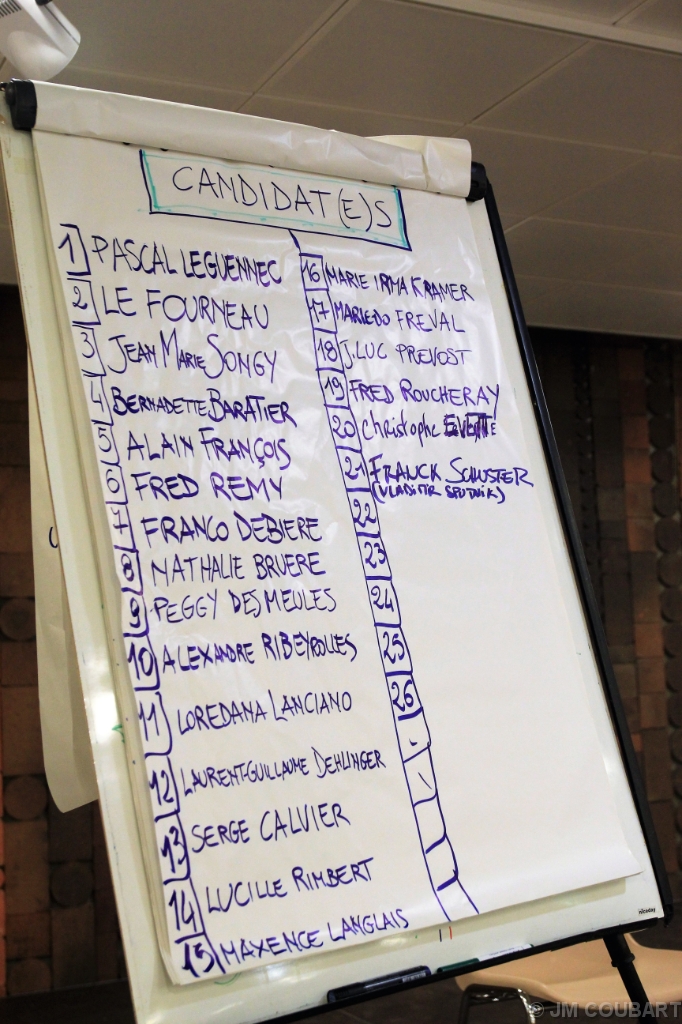 CANDIDAT(E)S
1 PASCAL LEGUENNEC
2 LE FOURNEAU
3 JEAN MARIE SONGY
4 BERNADETTE BARATIER
5 ALAIN FRANÇOIS
6 FRED REMY
7 FRANCO DEBIERE
8 NATHALIE BRUERE
9 PEGGY DESMEULES
10 ALEXANDRE RIBEYROLLES
11 LOREDANA LANCIANO
12 LAURENT-GUILLAUME DEHLINGER
13 SERGE CALVIER
14 LUCILLE RIMBERT
15 MAXENCE LANGLAIS
16 MARIE IRMA KRAMER
17 MARIEDO FREVAL
18 J.LUC PREVOST
19 FRED ROUCHERAY
20 Christophe
21 FRANCK SCHUSTER
(VLADIMIR SPUTNIK)
22
23
24
25
26
© JM COUBART